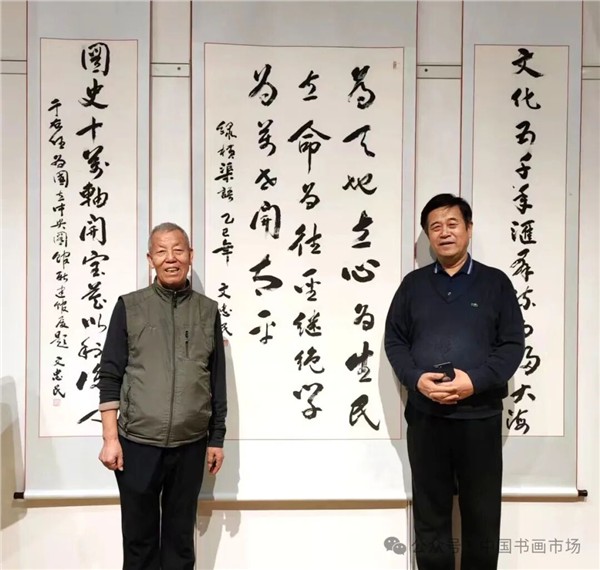 文化五千年匯群流而歸大海
為天地立心為生民
立命為往聖繼絕學
為萬世開太平
錄橫渠語 乙巳年 文忠民
圖史十萬軸開寶藏以利後人
于右任為國立中央圖館新建館題 文忠民
公众号·中国书画市场